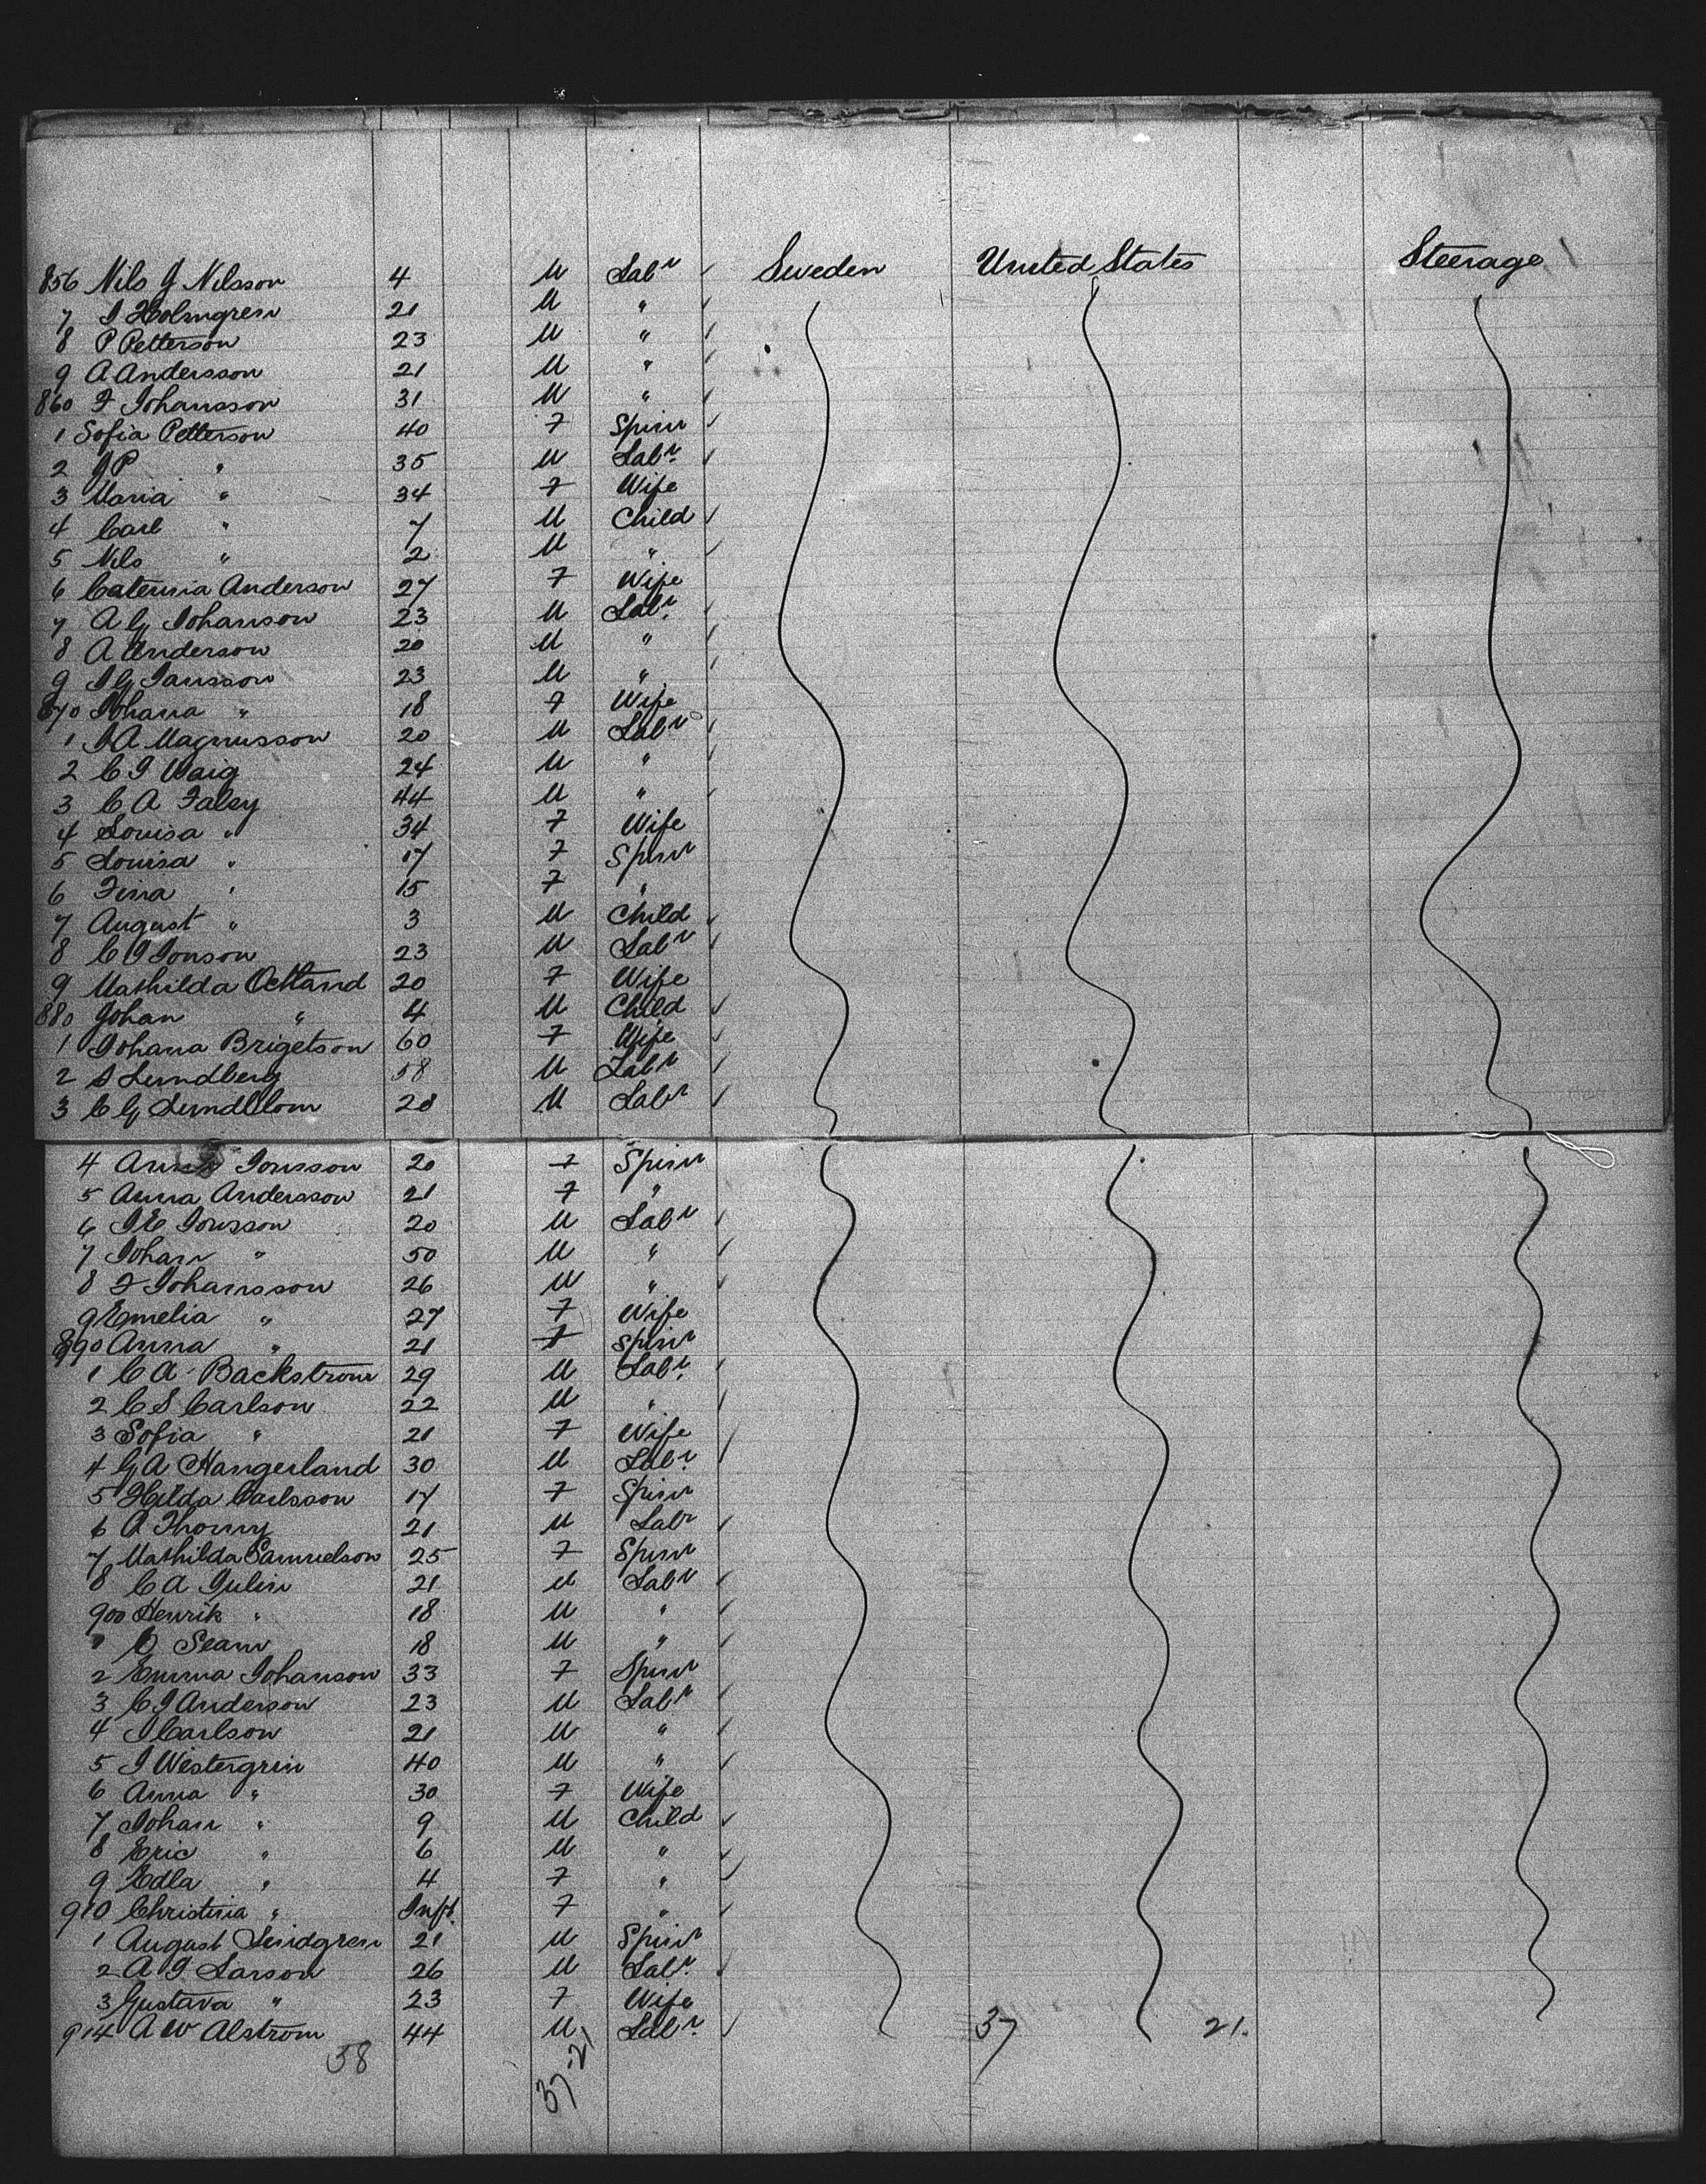 856 Nils J Nilsson 4 M Labr Sweden United States Steerage
7 I Holmgren 21 M "
8 P Petterson 23 M "
9 A Andersson 21 M "
860 F Johansson 31 M "
1 Sofia Petterson 40 F Spinr
2 J P " 35 M Labr
3 Maria " 34 F Wife
4 Carl " 7 M Child
5 Nils " 2 M "
6 Caterina Anderson 27 F Wife
7 A G Johanson 23 M Labr
8 A Anderson 20 M "
9 I G Jansson 23 M "
870 Johana " 18 F Wife
1 I A Magnusson 20 M Labr
2 C I 24 M "
3 C A Faley 44 M "
4 Louisa " 34 F Wife
5 Louisa " 17 F Spinr
6 Fina " 15 F "
7 August " 3 M Child
8 C I Jonson 23 M Labr
9 Mathilda 20 F Wife
880 Johan " 4 M Child
1 Johana Brigetson 60 F Wife
2 S Lundberg 58 M Labr
3 C G Lundblom 28 M Labr
4 Anna Jonsson 20 F Spinr
5 Anna Andersson 21 F "
6 I E Jonsson 20 M Labr
7 Johan " 50 M "
8 F Johansson 26 M "
9 Emelia " 27 F Wife
890 Anna " 21 F Spinr
1 C A Backstrom 29 M Labr
2 C S Carlson 22 M "
3 Sofia " 21 F Wife
4 G A Hangerland 30 M Labr
5 Hilda Carlsson 17 F Spinr
6 A Thorny 21 M Labr
7 Mathilda Samuelson 25 F Spinr
8 C A Julin 21 M Labr
900 Henrik " 18 M "
1 O Seann 18 M "
2 Emma Johanson 33 F Spinr
3 C I Anderson 23 M Labr
4 I Carlson 21 M "
5 I Westergrin 40 M "
6 Anna " 30 F Wife
7 Johan " 9 M Child
8 Eric " 6 M "
9 Edla " 4 F "
910 Christina " Inft. F "
1 August Lindgren 21 M Spinr
2 A I Larson 26 M Labr
3 Gustava " 23 F Wife
914 A W Alstrom 44 M Labr 37 21.
58 37 21